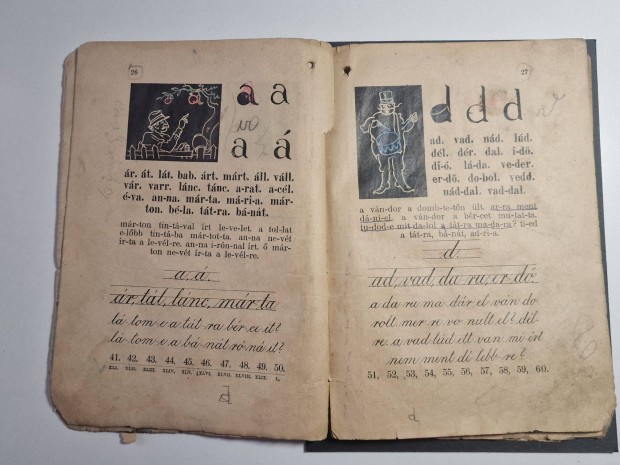 26
a a
a á
ár. át. lát. bab. árt. márt. áll. váll.
vár. varr. lánc. tánc. a-rat. a-cél.
é-va. an-na. már-ta. má-ri-a. már-
ton. bé-la. tát-ra. bá-nát.
már-ton tin-tá-val írt le-ve-let. a tol-lat
e-lőbb tin-tá-ba már-tot-ta. an-na ne-vét
ír-ta a le-vél-re. an-na i-rón-nal írt. ő már-
ton ne-vét ír-ta a le-vél-re.
a. á.
ár, tál, lánc, már-ta
lá-tom-e a tát-ra bér-ce-it?
lá-tom-e a bá-nát ró-ná-it?
41. 42. 43. 44. 45. 46. 47. 48. 49. 50.
XLI. XLII. XLIII. XLIV. XLV. XLVI. XLVII. XLVIII. XLIX. L.
d
27
d d d
ad. vad. nád. lúd.
dél. dér. dal. i-dő.
di-ó. lá-da. ve-der.
er-dő. do-bol. vedd.
nád-dal. vad-dal.
a ván-dor a domb-te-tőn ült. ar-ra ment
dá-ni-el. a ván-dor a bér-cet mu-tat-ta.
tu-dod-e mit da-lol a tát-ra ma-da-ra? ti-ed
a tát-ra, bá-nát, ad-ri-a.
d.
ad, vad, da-ru, er-dő.
a da-ru ma-dár el-ván-do
rolt. mer-re vo-nult el? dél-
re. a vad-lúd itt van. mi-ért
nem ment dé-lebb-re?
51, 52, 53, 54, 55, 56, 57, 58, 59, 60.
d